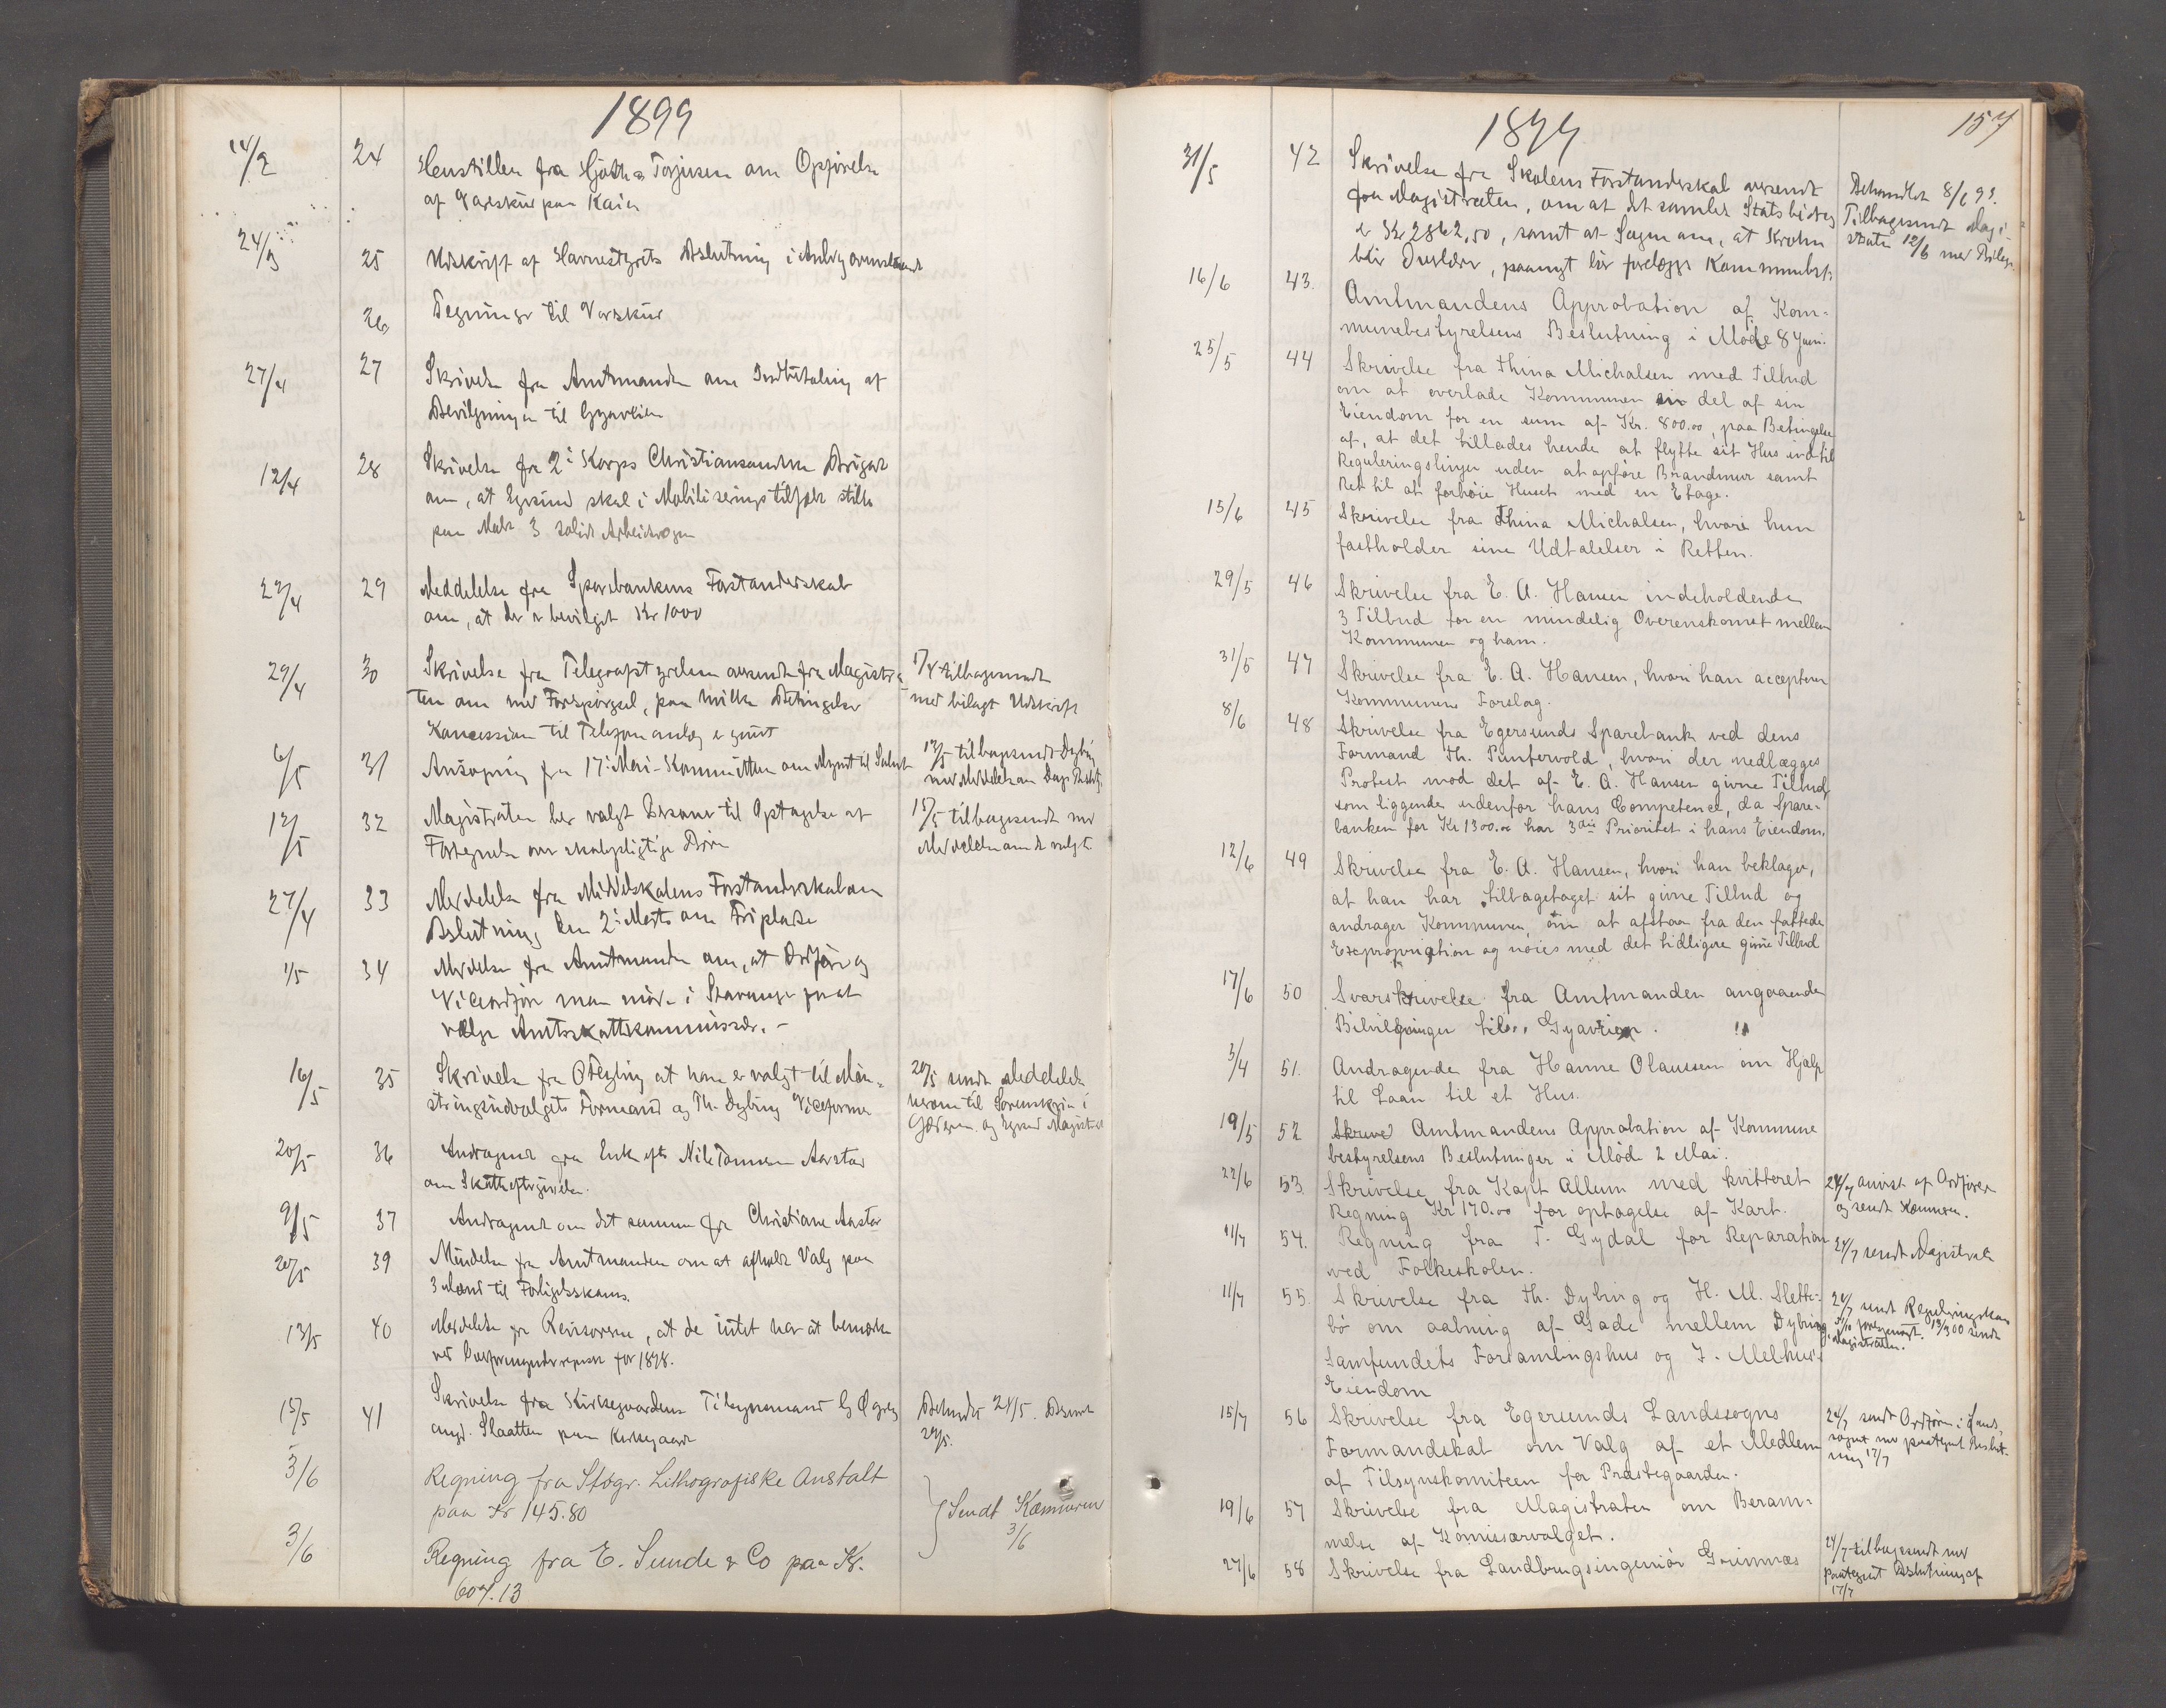 1899
14/2 24 Henstillen fra Torjusen om Opførelse
af Vareskur paa Kaien
24/3 25 Udskrift af Havnestyrets Beslutning i
26 Tegninger til Vareskur
27/4 27 Skrivelse fra Amtmanden om Indbetaling af
Bevilgningen til Gyaveien
12/4 28 Skrivelse fra 2: Korps Christiansandske Brigade
om, at Egersund skal i Mobiliseringstilfælde stille
paa 3 solide Arbeidsvogne
22/4 29 Meddelelse fra Sparebankens Forstanderskab
om, at der er bevilget Kr 1000
29/4 30 Skrivelse fra Telegrafstyrelsen oversendt fra Magistra- 1/4 tilbagesendt
ten om med Forespørgsel, paa hvilke Betingelser med bilagt Udskrift
Koncession til Telefonanlæg er givet
6/5 31 Ansøgning fra 17: Mai-Kommitteen om til Salut 12/5 tilbagesendt Dybing
med Meddelelse om
12/5 32 Magistraten har valgt til Optagelse af 15/5 tilbagesendt med
Fortegnelse over skolepligtige Børn Meddelelse om de valgte
27/4 33 Meddelelse fra Middelskolens Forstanderskab om
Beslutning den 2: Marts om Fripladse
1/5 34 Meddelelse fra Amtmanden om, at Ordfører og
Viceordfører maa møde i Stavanger for at
vælge Amtsskattekommissær. -
16/5 35 Skrivelse fra at han er valgt til Møn- 20/5 sendt Meddelelse
stringsudvalgets Formand og Th. Dybing Viceformand herom til Sorenskriveren i
Jæderen og Egersund Magistrat
20/5 36 Andragende fra Enke efter Nils Tønnesen Aarstad
om Skatteeftergivelse.
9/5 37 Andragende om det samme fra Christiane Aarstad
20/5 39 Meddelelse fra Amtmanden om at afholde Valg paa
3 Mænd til Forligelseskomm.
13/5 40 Meddelelse fra Revisorerne, at de intet har at bemærke
ved for 1898.
15/5 41 Skrivelse fra Kirkegaardens Tilsynsmand Behandlet 24/5.
angd. Slaatten paa Kirkegaard 29/5.
3/6 Regning fra Stogr. Lithografiske Anstalt
paa Kr 145.80 } Sendt Kæmneren
3/6 Regning fra E. Sunde & Co paa Kr. 3/6
607.13
1899 157
31/5 42 Skrivelse fra Skolens Forstanderskab oversendt Behandlet 8/6 99.
fra Magistraten, om at det samlede Statsbidrag Tilbagesendt Magi-
er Kr 2862,50, samt at Sagen om, at Krohn straten 12/6 med Bilag.
blir Overlærer, paanyt blir forelagt Kommunebst.
16/6 43. Amtmandens Approbation af Kom-
munebestyrelsens Beslutning i Møde 8 Juni.
25/5 44 Skrivelse fra Thina Michalsen med Tilbud
om at overlade Kommunen en del af sin
Eiendom for en sum af Kr. 800.00, paa Betingelse
af, at det tillades hende at flytte sit Hus ind til
Reguleringslinjen uden at opføre Brandmur samt
Ret til at forhøie Huset med en Etage.
15/6 45 Skrivelse fra Thina Michalsen, hvori hun
fastholder sine Udtalelser i Retten.
29/5 46 Skrivelse fra E. A. Hansen indeholdende
3 Tilbud for en mindelig Overenskomst mellem
Kommunen og ham.
31/5 47 Skrivelse fra E. A. Hansen, hvori han accepterer
Kommunens Forslag.
8/6 48 Skrivelse fra Egersunds Sparebank ved dens
Formand Th. Puntervold, hvori der nedlægges
Protest mod det af E. A. Hansen givne Tilbud,
som liggende udenfor hans Competence, da Spare-
banken for Kr 1300.00 har 3die Prioritet i hans Eiendom.
12/6 49 Skrivelse fra E. A. Hansen, hvori han beklager,
at han har tilbagetaget sit givne Tilbud og
andrager Kommunen om at afstaa fra den fattede
Expropriation og nøies med det tidligere givne Tilbud
17/6 50 Svarskrivelse fra Amtmanden angaaende
Bevilgninger til Gyaveien.
3/4 51. Andragende fra Hanne Olaussen om Hjælp
til Laan til et Hus.
19/5 52 Skrive Amtmandens Approbation af Kommune
bestyrelsens Beslutninger i Møde 2 Mai.
22/6 53. Skrivelse fra Kapt Allum med kvitteret 24/7 anvist af Ordføreren
Regning Kr 170.00 for optagelse af Kart. og sendt Kæmneren.
11/7 54. Regning fra T. Gydal for Reparation 24/7 sendt Magistraten
ved Folkeskolen.
11/7 55. Skrivelse fra Th. Dybing og H. M. Slette- 24/7 sendt Reguleringskom
bø om aabning af Gade mellem Dybing, 13/3 00 sendt
Samfundets Forsamlingshus og J. Melhus's Magistraten.
Eiendom
15/7 56 Skrivelse fra Egersunds Landssogns 24/7 sendt Ordføreren i Lands
Formandskab om Valg af et Medlem sognet med paategnet Beslut-
af Tilsynskomiteen for Præstegaarden. ning 17/7
19/6 57 Skrivelse fra Magistraten om Beram-
melse af Komissærvalget.
27/6 58 Skrivelse fra Landbrugsingeniør Grimnæs 24/7 tilbagesendt med
paategnet Beslutning af
17/7